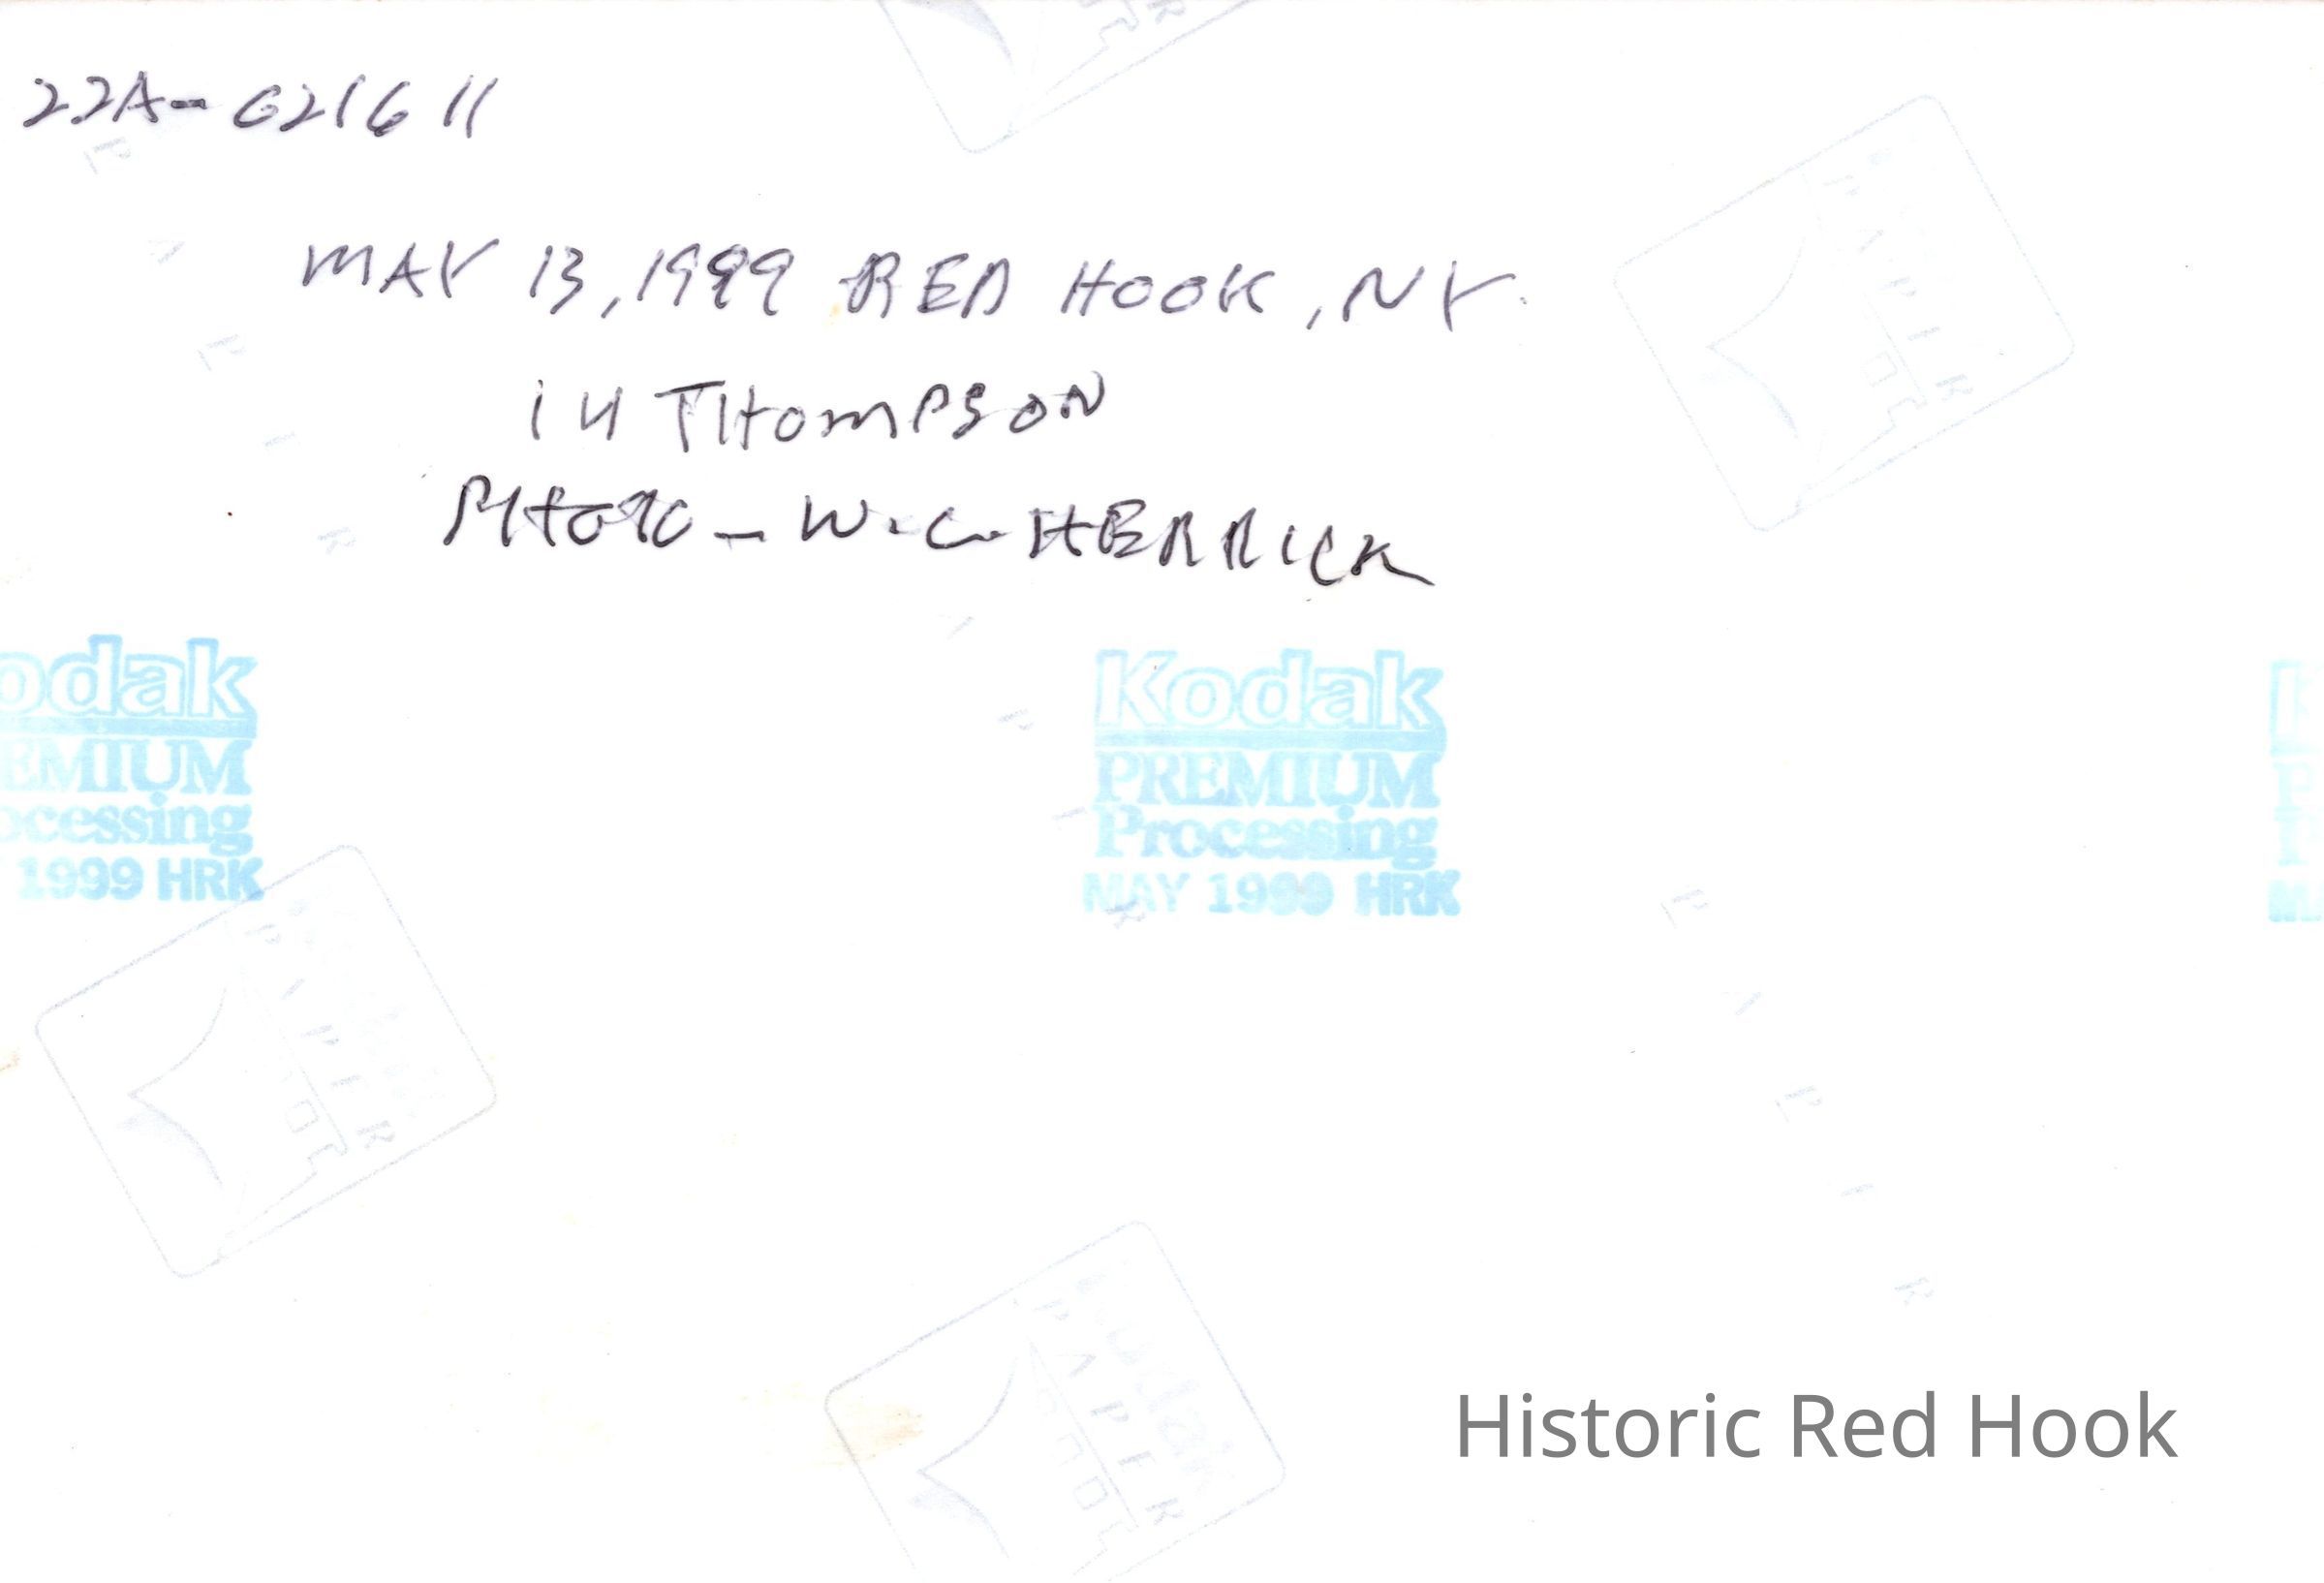 22A-021611
MAY 13, 1999 RED HOOK, NY.
14 THOMPSON
PHOTO - W.C. HERRICK
odak
EMIUM
ocessing
1999 HRK
Kodak
PREMIUM
Processing
MAY 1999 HRK
PAPIER
PAPER
Historic Red Hook